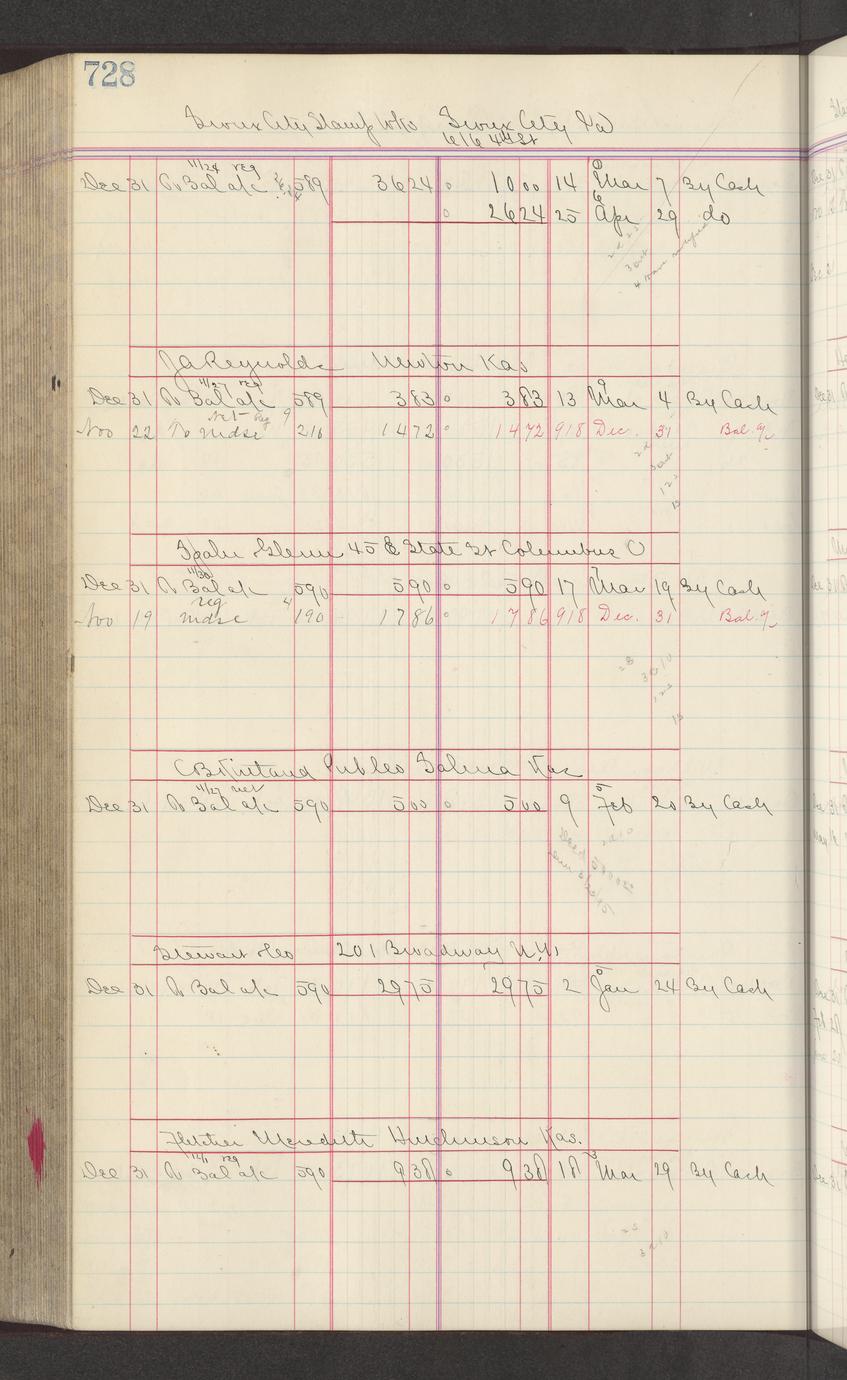 728
Sioux City Stamp Wks Sioux City Ia
616 4th St
11/24 reg
Dec 31 To Bal a/c 589 3624 1000 14 Mar 7 By Cash
2624 25 Apr 29 do
JA Reynolds Newton Kas
11/27 reg
Dec 31 To Bal a/c 589 383 383 13 Mar 4 By Cash
Nov 22 To mdse 216 1472 1472 918 Dec. 31 Bal.
Glenn 45 E State St Columbus O
11/30
Dec 31 To Bal a/c 590 590 590 17 Mar 19 By Cash
reg
Nov 19 mdse 190 1786 1786 918 Dec. 31 Bal.
CB Kirtland Pub Co Salina Kas
11/27 net
Dec 31 To Bal a/c 590 500 500 9 Feb 20 By Cash
Stewart Geo 201 Broadway N.Y.
Dec 31 To Bal a/c 590 2975 2975 2 Jan 24 By Cash
Fletcher Meredith Hutchinson Kas.
12/1 reg
Dec 31 To Bal a/c 590 938 938 18 Mar 29 By Cash